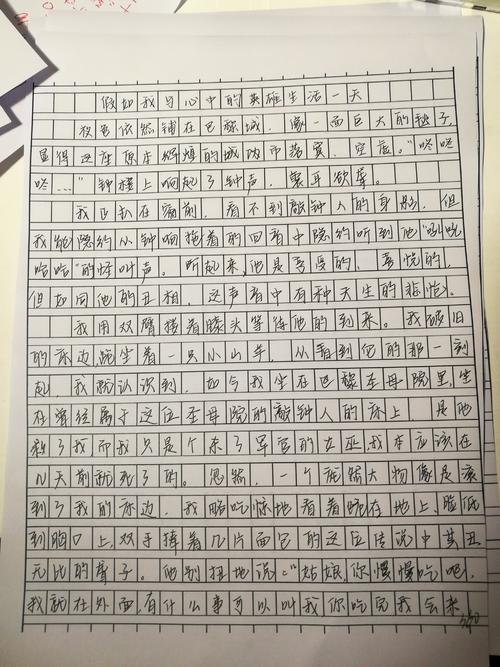 假如我与心中的英雄生活一天
夜色依然铺在巴黎城，像一面巨大的
显得这座原本辉煌的城内市落寞，空虚。“咚咚
咚……”钟楼上响起了钟声，震耳欲聋。
我正趴在窗前，看不到敲钟人的身影，但
我能隐约从钟响拖着的回音中隐约听到他“叽叽
哈哈”的怪叫声。听起来，他是享受的，喜悦的，
但如同他的丑相，这声音中有种天生的悲怆。
我用双臂搂着膝头等待他的到来。我破旧
的床边，跪坐着一只小山羊，从看到它的那一刻
起，我就认识到，如今我坐在巴黎圣母院里，坐
在曾经属于这位圣母院的敲钟人的床上，是他
救了我而我只是个杀了军官的女巫，我本应该在
几天前就死了的。忽然，一个庞然大物像是滚
到了我的床边，我略吃惊地看着跪在地上，脸低
到胸口上，双手捧着几片面包的这位传说中其丑
无比的聋子。他别扭地说：“姑娘，你慢慢吃吧，
我就在外面，有什么事可以叫我你吃完我会来